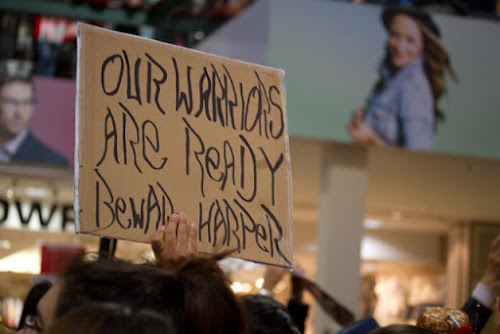 OUR WARRIORS
ARE READY
BEWAR HARPER
OWR